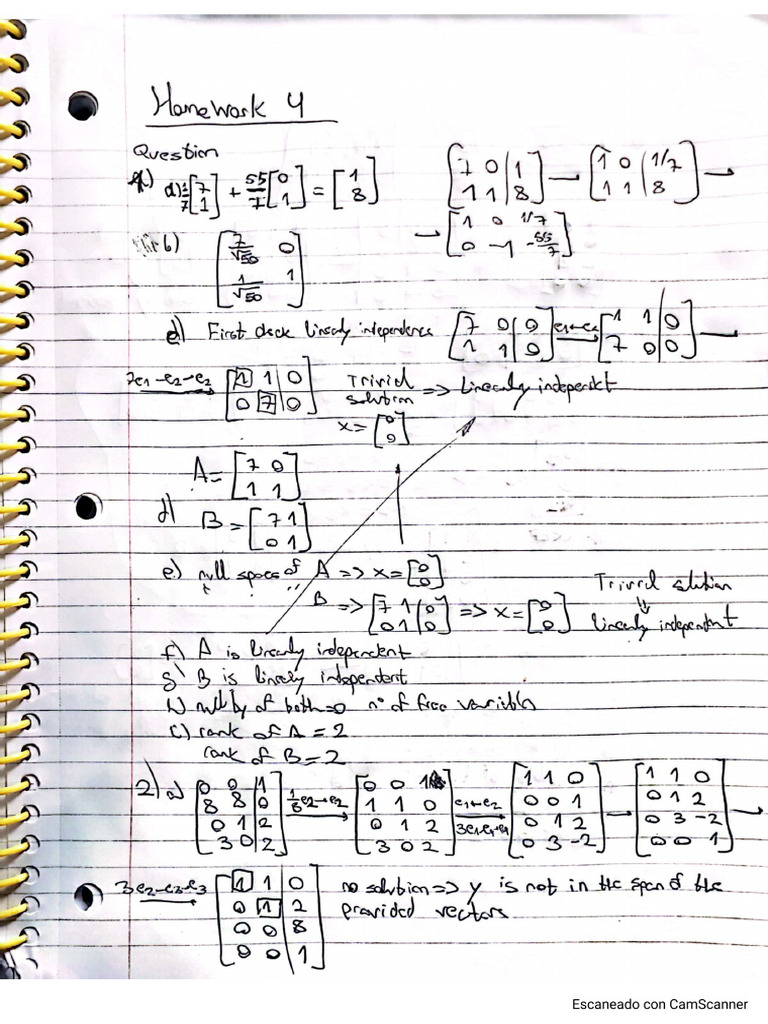 Homework 4
Question
a) 1/7 [7 1] + 55/7 [0 1] = [1 8]
[7 0 | 1
1 1 | 8] → [1 0 | 1/7
1 1 | 8] →
→ [1 0 1/7
0 -1 -55/7]
b) [7/√50 0
1/√50 1]
First check linearly independence [7 0 | 0
1 1 | 0] e1↔e2 → [1 1 | 0
7 0 | 0] →
7e1-e2→e2 [1 1 | 0
0 7 | 0] Trivial solution => Linearly independent
x = [0 0]
A = [7 0
1 1]
d) B = [7 1
0 1]
e) null space of A => x = [0 0]
B => [7 1 | 0
0 1 | 0] => x = [0 0]
Trivial solution
⇓
linearly independent
f) A is linearly independent
g) B is linearly independent
h) nullity of both = 0 nº of free variables
c) rank of A = 2
rank of B = 2
2) a) [0 0 | 1
8 8 | 0
0 1 | 2
3 0 | 2] 1/8 e2→e2 → [0 0 1
1 1 0
0 1 2
3 0 2] e1↔e2 → [1 1 0
0 0 1
0 1 2
0 3 -2] → [1 1 0
0 1 2
0 3 -2
0 0 1] →
3e2-e3→e3 [1 1 | 0
0 1 | 2
0 0 | 8
0 0 | 1] no solution => y is not in the span of the
provided vectors
Escaneado con CamScanner